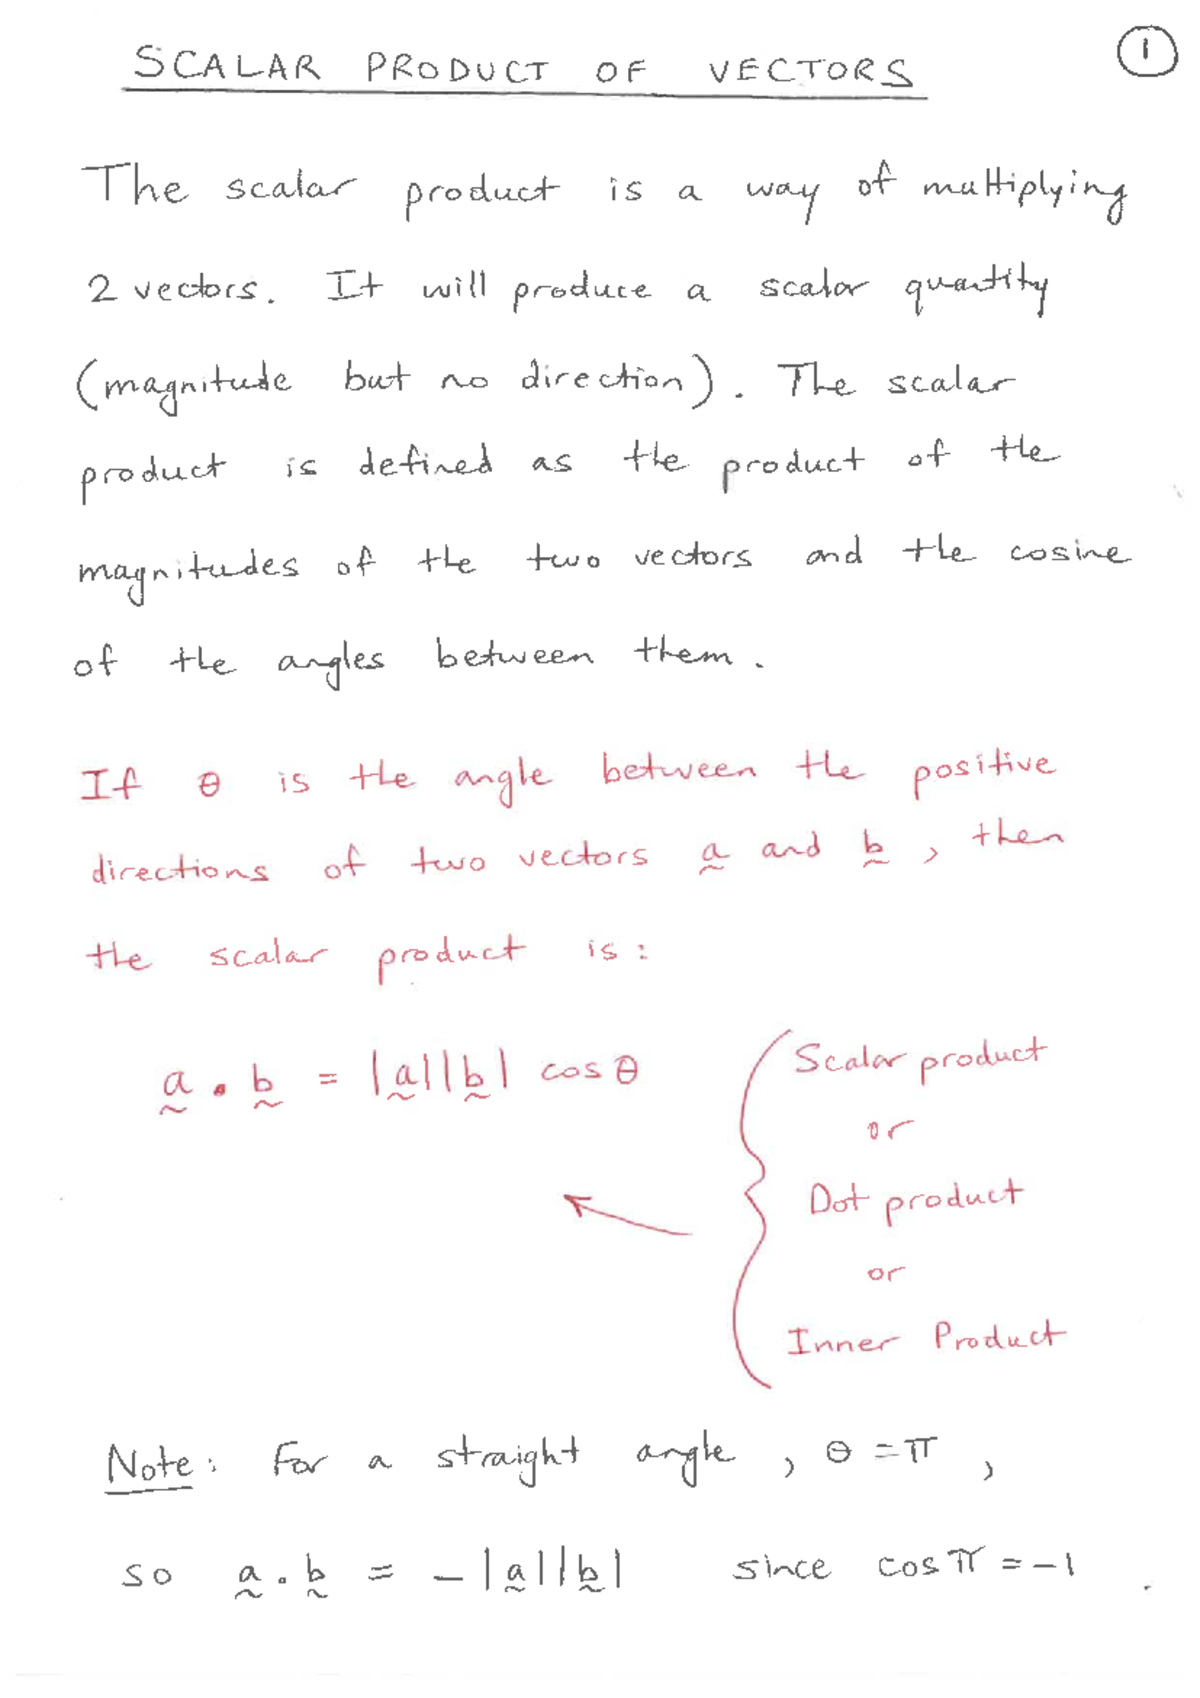 SCALAR PRODUCT OF VECTORS
1
The scalar product is a way of multiplying
2 vectors. It will produce a scalar quantity
(magnitude but no direction). The scalar
product is defined as the product of the
magnitudes of the two vectors and the cosine
of the angles between them.
If θ is the angle between the positive
directions of two vectors a and b, then
the scalar product is:
a . b = |a||b| cos θ
Scalar product
or
Dot product
or
Inner Product
Note: For a straight angle, θ = π,
so a . b = -|a||b| since cos π = -1.